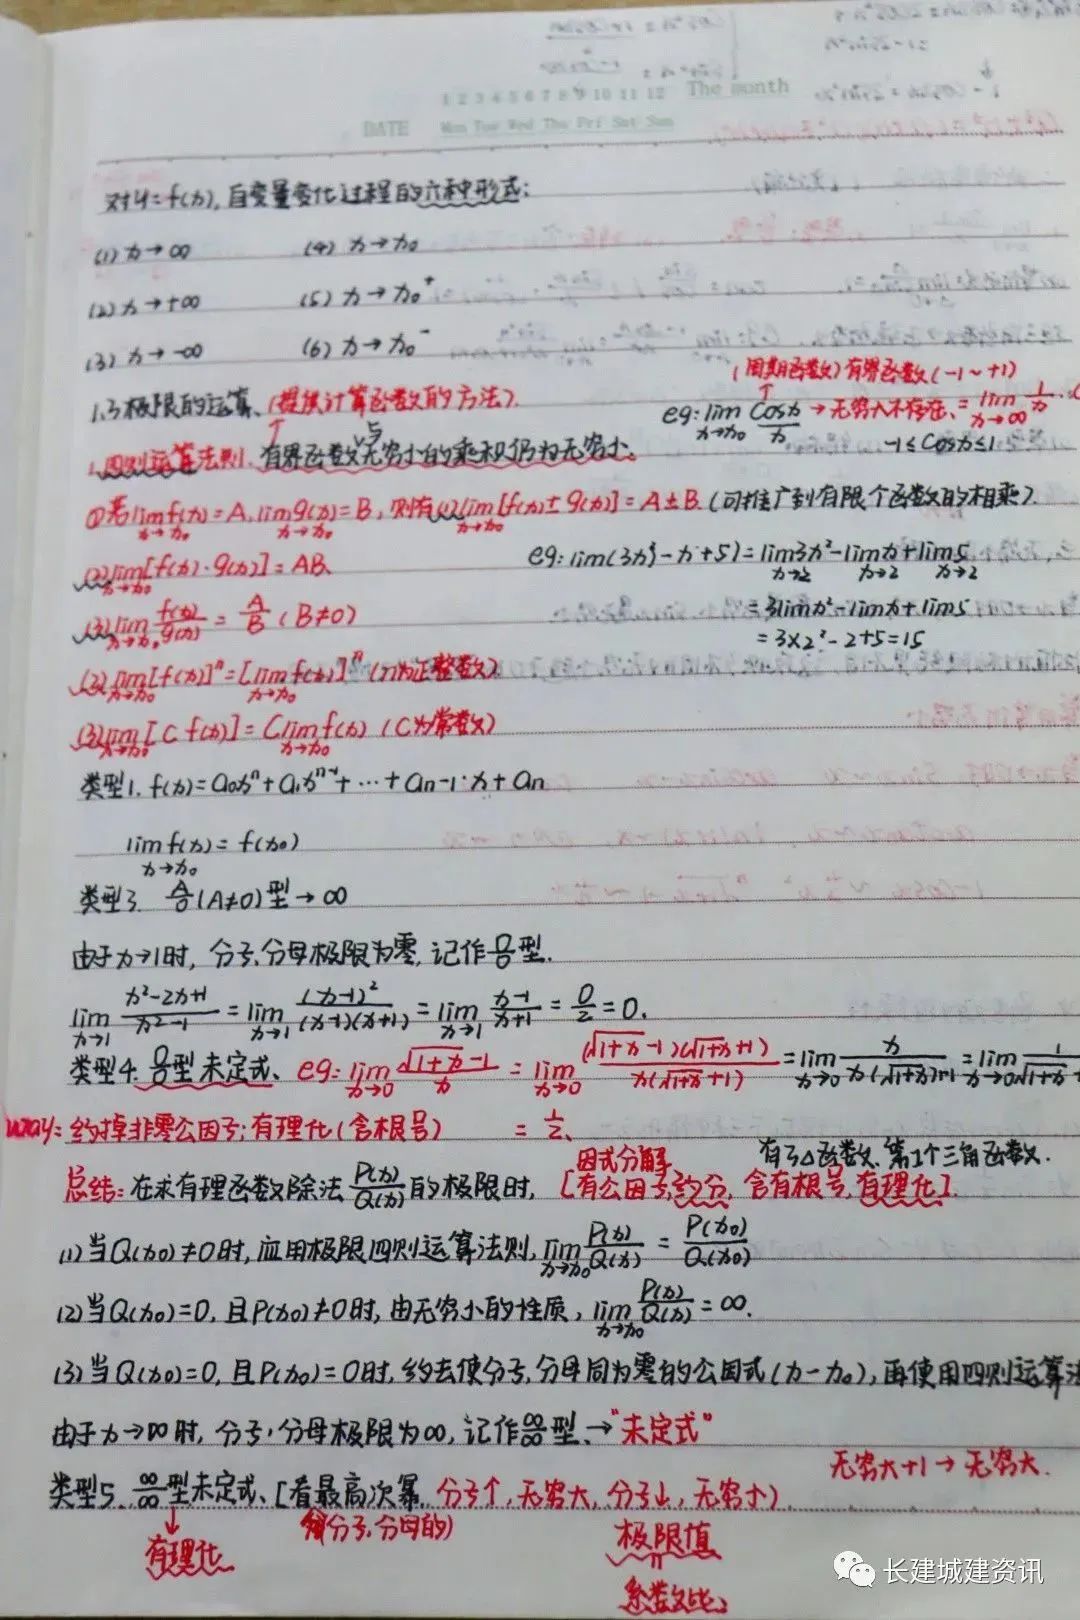 1 2 3 4 5 6 7 8 9 10 11 12 The month
DATE Mon Tue Wed Thu Fri Sat Sun
对y=f(x),自变量变化过程的六种形式:
(1) x→∞ (4) x→x₀
(2) x→+∞ (5) x→x₀⁺
(3) x→-∞ (6) x→x₀⁻
(周期函数)有界函数(-1~+1)
1.3极限的运算、(提供计算函数的方法).
eg: lim x→x₀ Cosx/x →无穷大不存在、= lim x→∞ 1/x
-1≤Cosx≤1
1、四则运算法则. 有界函数与无穷小的乘积仍为无穷小.
①若lim x→x₀ f(x)=A, lim x→x₀ g(x)=B, 则有(1)lim x→x₀ [f(x)±g(x)]=A±B (可推广到有限个函数的相乘).
(2)lim x→x₀ [f(x)·g(x)]=AB、
eg: lim(3x²-x+5)=lim x→2 3x²-lim x→2 x+lim x→2 5
(3)lim x→x₀ f(x)/g(x) = A/B (B≠0)
=3limx²-limx+lim5
=3×2²-2+5=15
(2)lim x→x₀ [f(x)]ⁿ=[lim x→x₀ f(x)]ⁿ (n为正整数)
(3)lim x→x₀ [C f(x)]=C lim x→x₀ f(x) (C为常数)
类型1. f(x)=a₀xⁿ+a₁xⁿ⁻¹+…+an-1·x+an
lim x→x₀ f(x)=f(x₀)
类型3. A/0(A≠0)型→∞
由于x→1时, 分子、分母极限为零, 记作0/0型.
lim x→1 (x²-2x+1)/(x²-1) = lim x→1 (x-1)²/(x-1)(x+1) = lim x→1 (x-1)/(x+1) = 0/2 = 0.
类型4. 0/0型未定式、eg: lim x→0 (√1+x -1)/x = lim x→0 (√1+x -1)(√1+x +1)/x(√1+x +1) = lim x→0 x/x(√1+x)+1 = lim x→0 1/√1+x +
way: 约掉非零公因子; 有理化(含根号) = 1/2、
因式分解 有了△函数、第1个三角函数.
总结: 在求有理函数除法 P(x)/Q(x) 的极限时, [有公因子,约分, 含有根号,有理化].
(1)当Q(x₀)≠0时, 应用极限四则运算法则, lim x→x₀ P(x)/Q(x) = P(x₀)/Q(x₀)
(2)当Q(x₀)=0, 且P(x₀)≠0时, 由无穷小的性质, lim x→x₀ P(x)/Q(x)=∞.
(3)当Q(x₀)=0, 且P(x₀)=0时, 约去使分子, 分母同为零的公因式(x-x₀), 再使用四则运算法
由于x→∞时, 分子, 分母极限为∞, 记作∞/∞型、→"未定式"
无穷大+1→无穷大.
类型5、∞/∞型未定式、[看最高次幂, 分子↑, 无穷大, 分子↓, 无穷小)
↓ (分子, 分母的)
有理化
极限值
=
系数比、
长建城建资讯